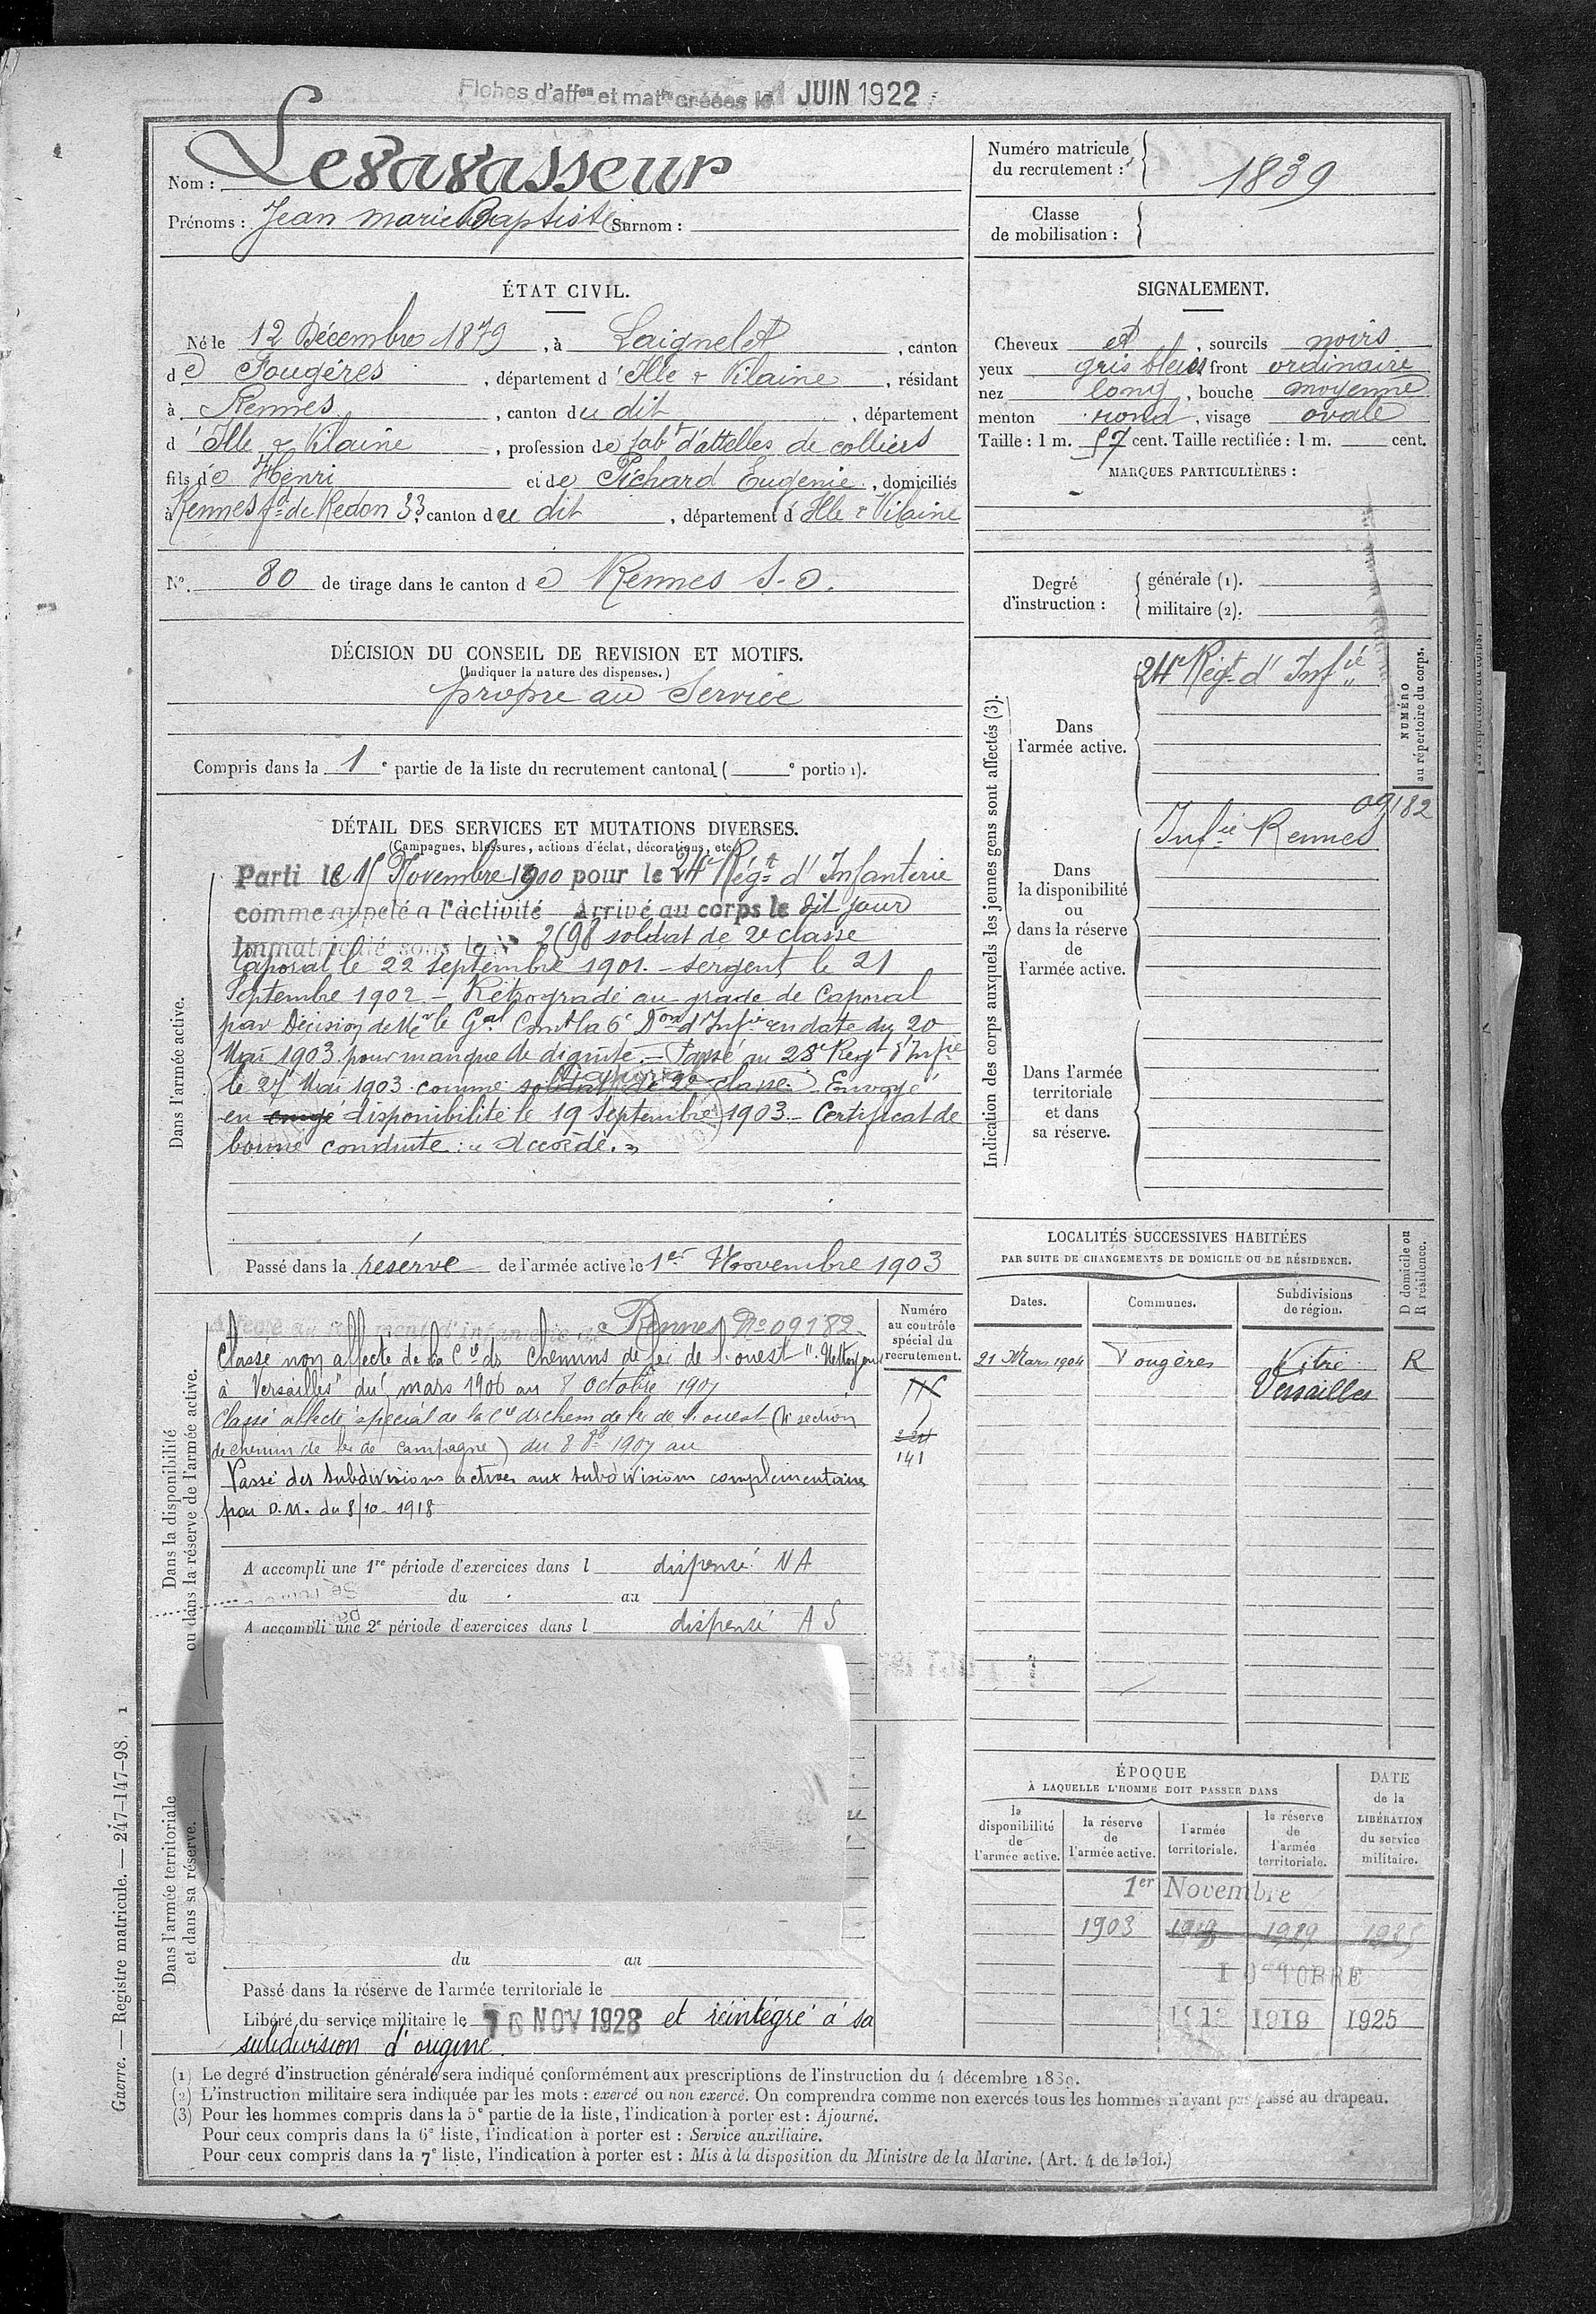 Fiches d'aff<sup>on</sup> et mat<sup>le</sup> créées le 1 JUIN 1922
Nom : Levavasseur
Prénoms : Jean Marie Baptiste Surnom :
Numéro matricule du recrutement : 1839
Classe de mobilisation :
ÉTAT CIVIL.
Né le 12 Décembre 1879, à Laignelet, canton
de Fougères, département d'Ille & Vilaine, résidant
à Rennes, canton du dit, département
d'Ille & Vilaine, profession de fab<sup>t</sup> d'attelles de colliers
fils de Henri et de Pichard Eugénie, domiciliés
à Rennes f<sup>g</sup> de Redon 33, canton du dit, département d'Ille & Vilaine
N°. 80 de tirage dans le canton de Rennes S-O.
SIGNALEMENT.
Cheveux et, sourcils noirs
yeux gris bleus front ordinaire
nez long, bouche moyenne
menton rond, visage ovale
Taille : 1 m. 57 cent. Taille rectifiée : 1 m. cent.
MARQUES PARTICULIÈRES :
Degré d'instruction :
générale (1).
militaire (2).
DÉCISION DU CONSEIL DE REVISION ET MOTIFS.
(Indiquer la nature des dispenses.)
propre au Service
Compris dans la 1<sup>e</sup> partie de la liste du recrutement cantonal ( <sup>e</sup> portion).
DÉTAIL DES SERVICES ET MUTATIONS DIVERSES.
(Campagnes, blessures, actions d'éclat, décorations, etc.)
Dans l'armée active.
Parti le 15 Novembre 1900 pour le 24<sup>e</sup> Rég<sup>t</sup> d'Infanterie
comme appelé à l'activité Arrivé au corps le dit jour
Immatriculé sous le N° 2698 soldat de 2<sup>e</sup> classe
Caporal le 22 septembre 1901. - sergent le 21
Septembre 1902. - Rétrogradé au grade de Caporal
par Décision de M<sup>r</sup> le G<sup>al</sup> Com<sup>t</sup> la 6<sup>e</sup> D<sup>on</sup> d'Inf<sup>ie</sup> en date du 20
Mai 1903 pour manque de dignité. - Passé au 28<sup>e</sup> Rég<sup>t</sup> d'Inf<sup>ie</sup>
le 27 Mai 1903 comme soldat de 2<sup>e</sup> classe. Caporal Envoyé
en congé disponibilité le 19 Septembre 1903. - Certificat de
bonne conduite : "Accordé."
Passé dans la réserve de l'armée active le 1<sup>er</sup> Novembre 1903
Indication des corps auxquels les jeunes gens sont affectés (3).
NUMÉRO au répertoire du corps.
Dans l'armée active.
24<sup>e</sup> Rég<sup>t</sup> d'Inf<sup>ie</sup>
Dans la disponibilité ou dans la réserve de l'armée active.
Inf<sup>ie</sup> Rennes 09182
Dans l'armée territoriale et dans sa réserve.
Dans la disponibilité ou dans la réserve de l'armée active.
Numéro au contrôle spécial du recrutement.
Affecté au régiment d'infanterie de Rennes N° 09182
Classé non affecté de la C<sup>ie</sup> des chemins de fer de l'ouest "Nettoyeur
à Versailles" du mars 1906 au 8 octobre 1907
Classé affecté spécial de la C<sup>ie</sup> des chem de fer de l'ouest (4<sup>e</sup> section
de chemin de fer de campagne) du 8 8<sup>bre</sup> 1907 au
141
Passé des subdivisions actives aux subdivisions complémentaires
par D.M. du 8/10-1918
A accompli une 1<sup>re</sup> période d'exercices dans l dispensé NA
du au
A accompli une 2<sup>e</sup> période d'exercices dans l dispensé AS
LOCALITÉS SUCCESSIVES HABITÉES
PAR SUITE DE CHANGEMENTS DE DOMICILE OU DE RÉSIDENCE.
Dates. Communes. Subdivisions de région. D domicile ou R résidence.
21 Mars 1904 Fougères Vitré R
Versailles
Dans l'armée territoriale et dans sa réserve.
du au
Passé dans la réserve de l'armée territoriale le
Libéré du service militaire le 10 NOV 1928 et réintégré à sa
subdivision d'origine.
ÉPOQUE
À LAQUELLE L'HOMME DOIT PASSER DANS
la disponibilité de l'armée active.
la réserve de l'armée active.
l'armée territoriale.
la réserve de l'armée territoriale.
DATE de la LIBÉRATION du service militaire.
1<sup>er</sup> Novembre
1903 1913 1919 1925
1 OCTOBRE
1913 1919 1925
(1) Le degré d'instruction générale sera indiqué conformément aux prescriptions de l'instruction du 4 décembre 1889.
(2) L'instruction militaire sera indiquée par les mots : exercé ou non exercé. On comprendra comme non exercés tous les hommes n'ayant pas passé au drapeau.
(3) Pour les hommes compris dans la 5<sup>e</sup> partie de la liste, l'indication à porter est : Ajourné.
Pour ceux compris dans la 6<sup>e</sup> liste, l'indication à porter est : Service auxiliaire.
Pour ceux compris dans la 7<sup>e</sup> liste, l'indication à porter est : Mis à la disposition du Ministre de la Marine. (Art. 4 de la loi.)
Guerre. — Registre matricule. — 247-147-98. 1